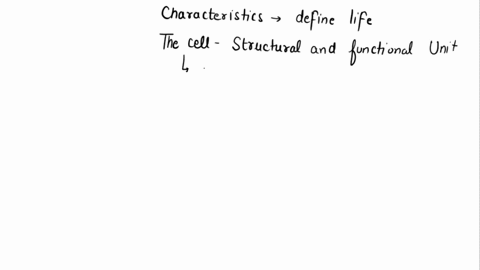 Characteristics → define life
The cell - Structural and functional Unit
↳